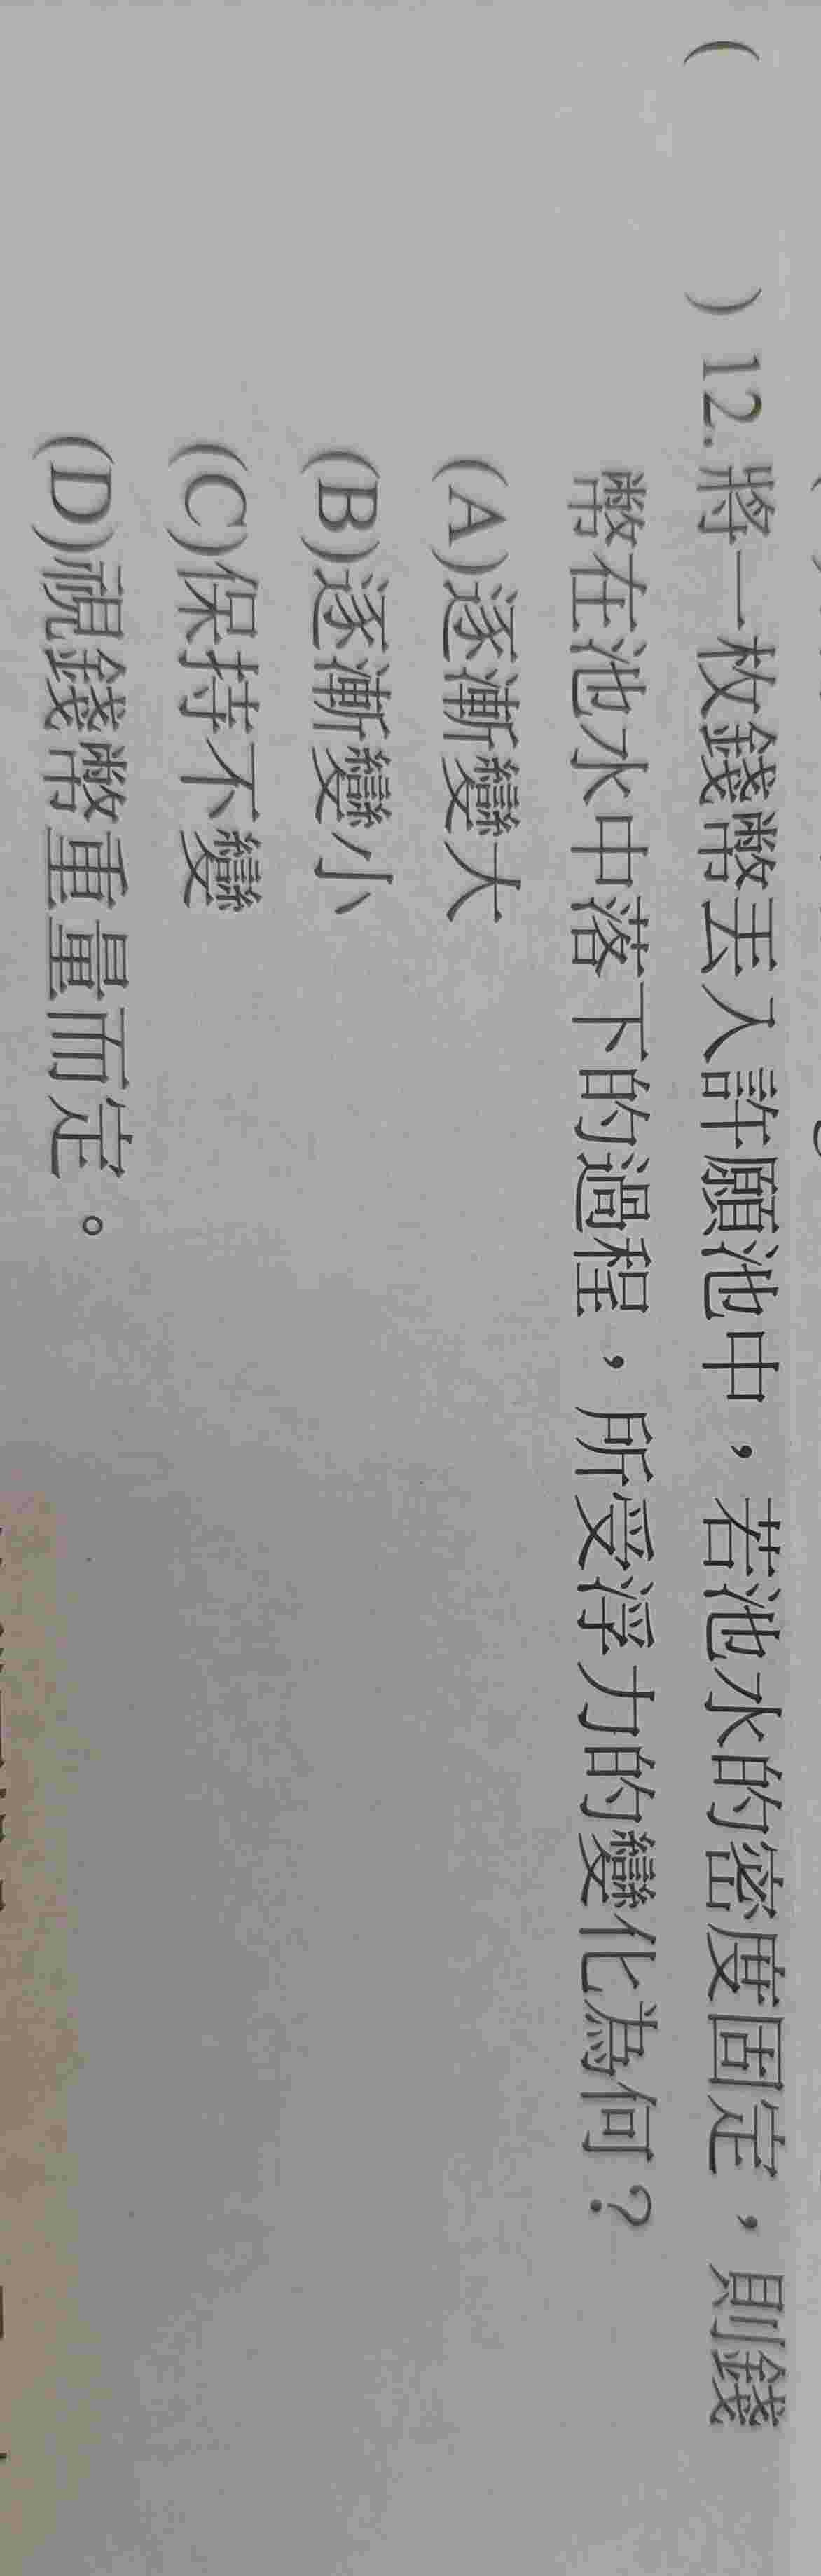 (　　)12.將一枚錢幣丟入許願池中，若池水的密度固定，則錢
幣在池水中落下的過程，所受浮力的變化為何？
(A)逐漸變大
(B)逐漸變小
(C)保持不變
(D)視錢幣重量而定。